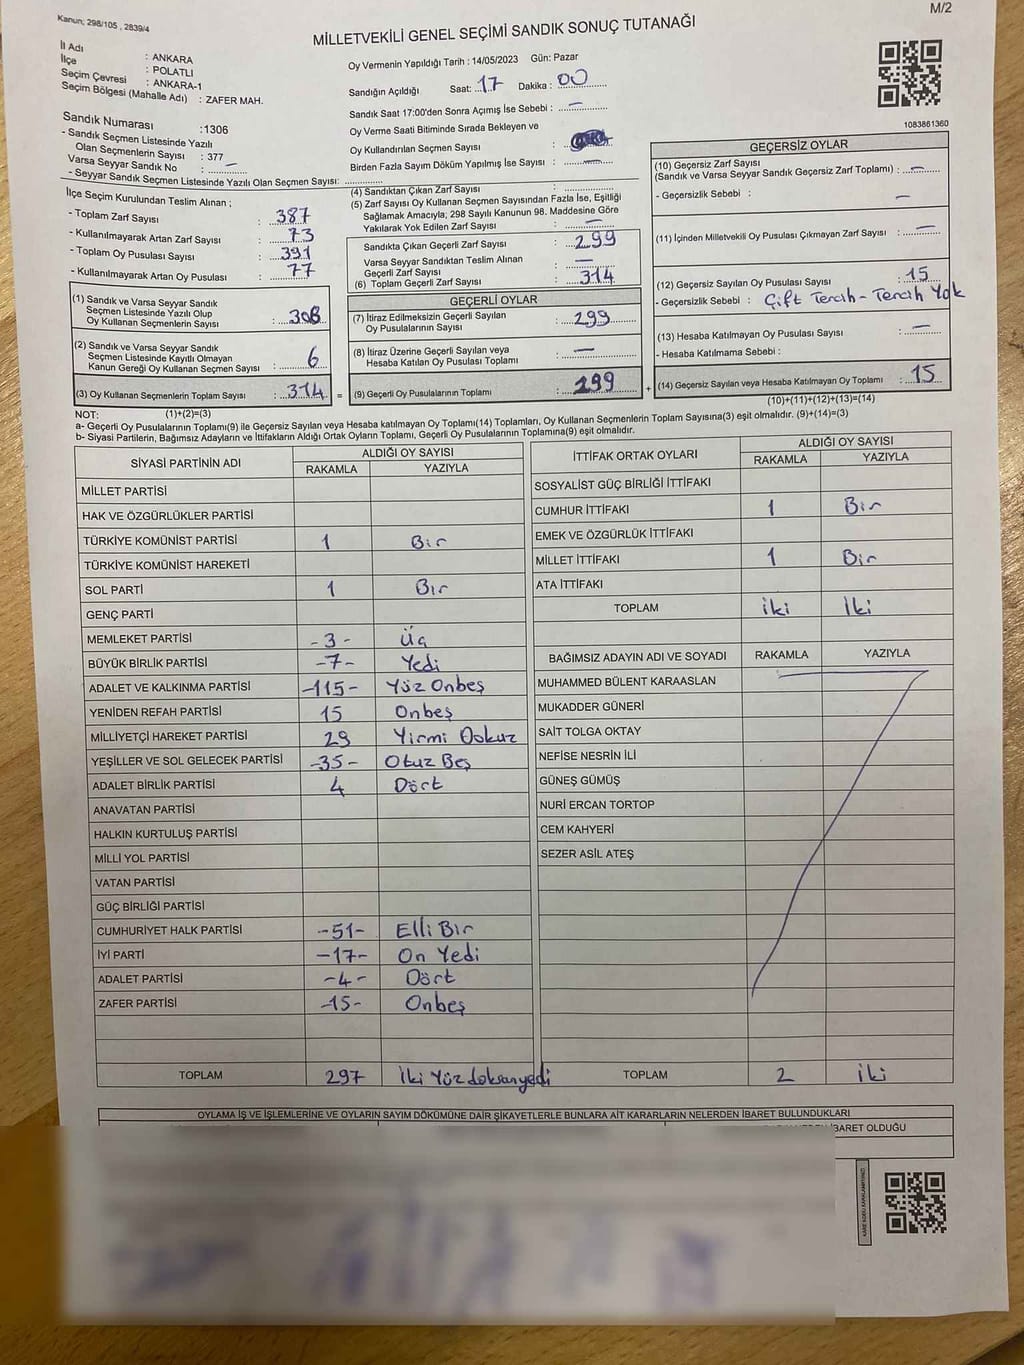 Kanun; 298/105 , 2839/4
M/2
MİLLETVEKİLİ GENEL SEÇİMİ SANDIK SONUÇ TUTANAĞI
İl Adı : ANKARA
İlçe : POLATLI
Seçim Çevresi : ANKARA-1
Seçim Bölgesi (Mahalle Adı) : ZAFER MAH.
Sandık Numarası :1306
- Sandık Seçmen Listesinde Yazılı
Olan Seçmenlerin Sayısı : 377
Varsa Seyyar Sandık No : –
- Seyyar Sandık Seçmen Listesinde Yazılı Olan Seçmen Sayısı:
Oy Vermenin Yapıldığı Tarih : 14/05/2023 Gün: Pazar
Sandığın Açıldığı Saat: 17 Dakika : 00
Sandık Saat 17:00'den Sonra Açımış İse Sebebi : –
Oy Verme Saati Bitiminde Sırada Bekleyen ve
Oy Kullandırılan Seçmen Sayısı :
Birden Fazla Sayım Döküm Yapılmış İse Sayısı : –
1083861360
İlçe Seçim Kurulundan Teslim Alınan ;
- Toplam Zarf Sayısı : 387
- Kullanılmayarak Artan Zarf Sayısı : 73
- Toplam Oy Pusulası Sayısı : 391
- Kullanılmayarak Artan Oy Pusulası : 77
(1) Sandık ve Varsa Seyyar Sandık
Seçmen Listesinde Yazılı Olup
Oy Kullanan Seçmenlerin Sayısı : 308
(2) Sandık ve Varsa Seyyar Sandık
Seçmen Listesinde Kayıtlı Olmayan
Kanun Gereği Oy Kullanan Seçmen Sayısı : 6
(3) Oy Kullanan Seçmenlerin Toplam Sayısı : 314 =
(4) Sandıktan Çıkan Zarf Sayısı :
(5) Zarf Sayısı Oy Kullanan Seçmen Sayısından Fazla İse, Eşitliği
Sağlamak Amacıyla; 298 Sayılı Kanunun 98. Maddesine Göre
Yakılarak Yok Edilen Zarf Sayısı : –
Sandıkta Çıkan Geçerli Zarf Sayısı : 299
Varsa Seyyar Sandıktan Teslim Alınan
Geçerli Zarf Sayısı : –
(6) Toplam Geçerli Zarf Sayısı : 314
GEÇERLİ OYLAR
(7) İtiraz Edilmeksizin Geçerli Sayılan
Oy Pusulalarının Sayısı : 299
(8) İtiraz Üzerine Geçerli Sayılan veya
Hesaba Katılan Oy Pusulası Toplamı : –
(9) Geçerli Oy Pusulalarının Toplamı : 299 +
GEÇERSİZ OYLAR
(10) Geçersiz Zarf Sayısı
(Sandık ve Varsa Seyyar Sandık Geçersiz Zarf Toplamı) : –
- Geçersizlik Sebebi : –
(11) İçinden Milletvekili Oy Pusulası Çıkmayan Zarf Sayısı : –
(12) Geçersiz Sayılan Oy Pusulası Sayısı : 15
- Geçersizlik Sebebi : Çift Tercih - Tercih Yok
(13) Hesaba Katılmayan Oy Pusulası Sayısı : –
- Hesaba Katılmama Sebebi :
(14) Geçersiz Sayılan veya Hesaba Katılmayan Oy Toplamı : 15
(10)+(11)+(12)+(13)=(14)
NOT: (1)+(2)=(3)
a- Geçerli Oy Pusulalarının Toplamı(9) ile Geçersiz Sayılan veya Hesaba katılmayan Oy Toplamı(14) Toplamları, Oy Kullanan Seçmenlerin Toplam Sayısına(3) eşit olmalıdır. (9)+(14)=(3)
b- Siyasi Partilerin, Bağımsız Adayların ve İttifakların Aldığı Ortak Oyların Toplamı, Geçerli Oy Pusulalarının Toplamına(9) eşit olmalıdır.
SİYASİ PARTİNİN ADI ALDIĞI OY SAYISI
RAKAMLA YAZIYLA
MİLLET PARTİSİ
HAK VE ÖZGÜRLÜKLER PARTİSİ
TÜRKİYE KOMÜNİST PARTİSİ 1 Bir
TÜRKİYE KOMÜNİST HAREKETİ
SOL PARTİ 1 Bir
GENÇ PARTİ
MEMLEKET PARTİSİ -3- Üç
BÜYÜK BİRLİK PARTİSİ -7- Yedi
ADALET VE KALKINMA PARTİSİ -115- Yüz Onbeş
YENİDEN REFAH PARTİSİ 15 Onbeş
MİLLİYETÇİ HAREKET PARTİSİ 29 Yirmi Dokuz
YEŞİLLER VE SOL GELECEK PARTİSİ -35- Otuz Beş
ADALET BİRLİK PARTİSİ 4 Dört
ANAVATAN PARTİSİ
HALKIN KURTULUŞ PARTİSİ
MİLLİ YOL PARTİSİ
VATAN PARTİSİ
GÜÇ BİRLİĞİ PARTİSİ
CUMHURİYET HALK PARTİSİ -51- Elli Bir
İYİ PARTİ -17- On Yedi
ADALET PARTİSİ -4- Dört
ZAFER PARTİSİ -15- Onbeş
TOPLAM 297 İki Yüz doksanyedi
İTTİFAK ORTAK OYLARI ALDIĞI OY SAYISI
RAKAMLA YAZIYLA
SOSYALİST GÜÇ BİRLİĞİ İTTİFAKI
CUMHUR İTTİFAKI 1 Bir
EMEK VE ÖZGÜRLÜK İTTİFAKI
MİLLET İTTİFAKI 1 Bir
ATA İTTİFAKI
TOPLAM iki İki
BAĞIMSIZ ADAYIN ADI VE SOYADI RAKAMLA YAZIYLA
MUHAMMED BÜLENT KARAASLAN
MUKADDER GÜNERİ
SAİT TOLGA OKTAY
NEFİSE NESRİN İLİ
GÜNEŞ GÜMÜŞ
NURİ ERCAN TORTOP
CEM KAHYERİ
SEZER ASİL ATEŞ
TOPLAM 2 İki
OYLAMA İŞ VE İŞLEMLERİNE VE OYLARIN SAYIM DÖKÜMÜNE DAİR ŞİKAYETLERLE BUNLARA AİT KARARLARIN NELERDEN İBARET BULUNDUKLARI
İBARET OLDUĞU